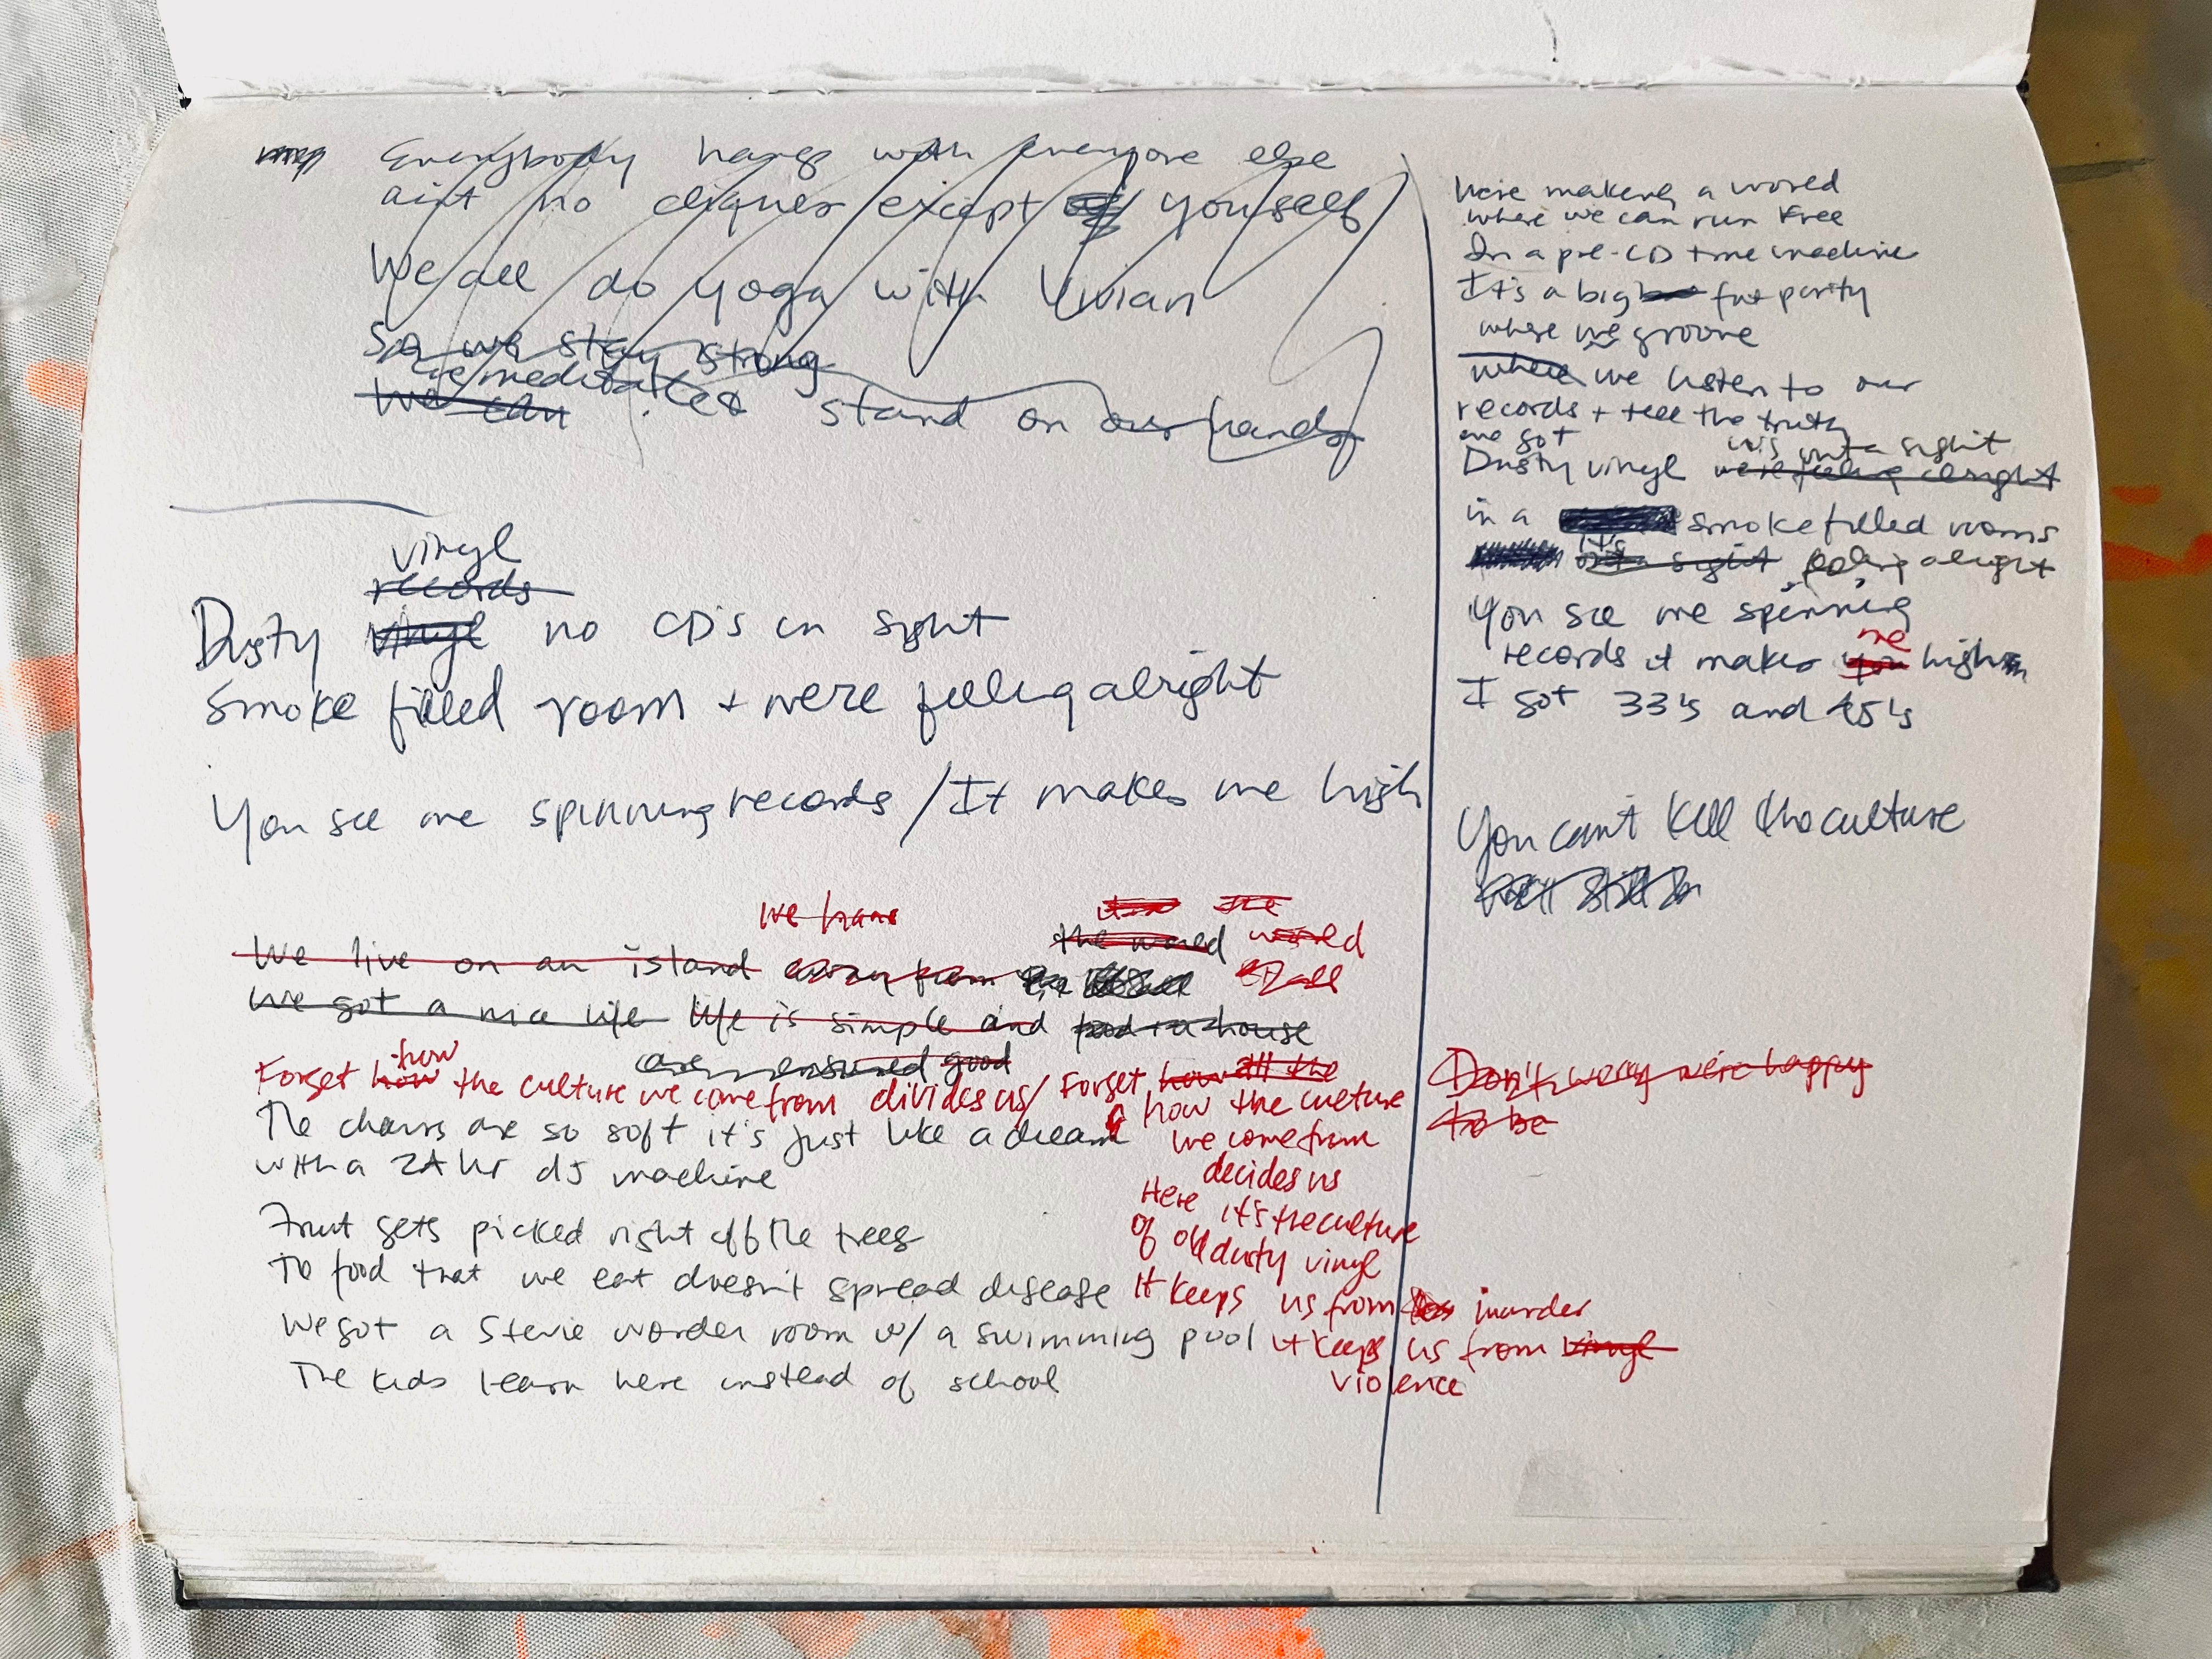 Everybody hangs with everyone else
aint no cliques except yourself
We all do yoga with Vivian
So we stay strong
we meditate
We can stand on our hands
vinyl
records
Dusty vinyl no CD's in sight
Smoke filled room + we're feeling alright
You see me spinning records / It makes me high
we have
the world world
We live on an island away from
We got a nice life life is simple and food + a house
are ensured good
how
Forget how the culture we come from divides us / Forget how all the
how the culture
we come from
decides us
Here it's the culture
of old dusty vinyl
It keeps us from murder
it keeps us from vinyl
violence
The chairs are so soft it's just like a dream
with a 24 hr dJ machine
Fruit gets picked right off the trees
The food that we eat doesn't spread disease
We got a Stevie wonder room w/ a swimming pool
The kids learn here instead of school
We're making a world
where we can run Free
In a pre-CD time machine
It's a big fat party
where we groove
where we listen to our
records + tell the truth
we got
Dusty vinyl we're feeling alright
outa sight
in a smoke filled rooms
it's
outa sight feeling alright
You see me spinning
me
records it makes you high
I got 33's and 45's
You can't kill the culture
Don't worry we're happy
to be